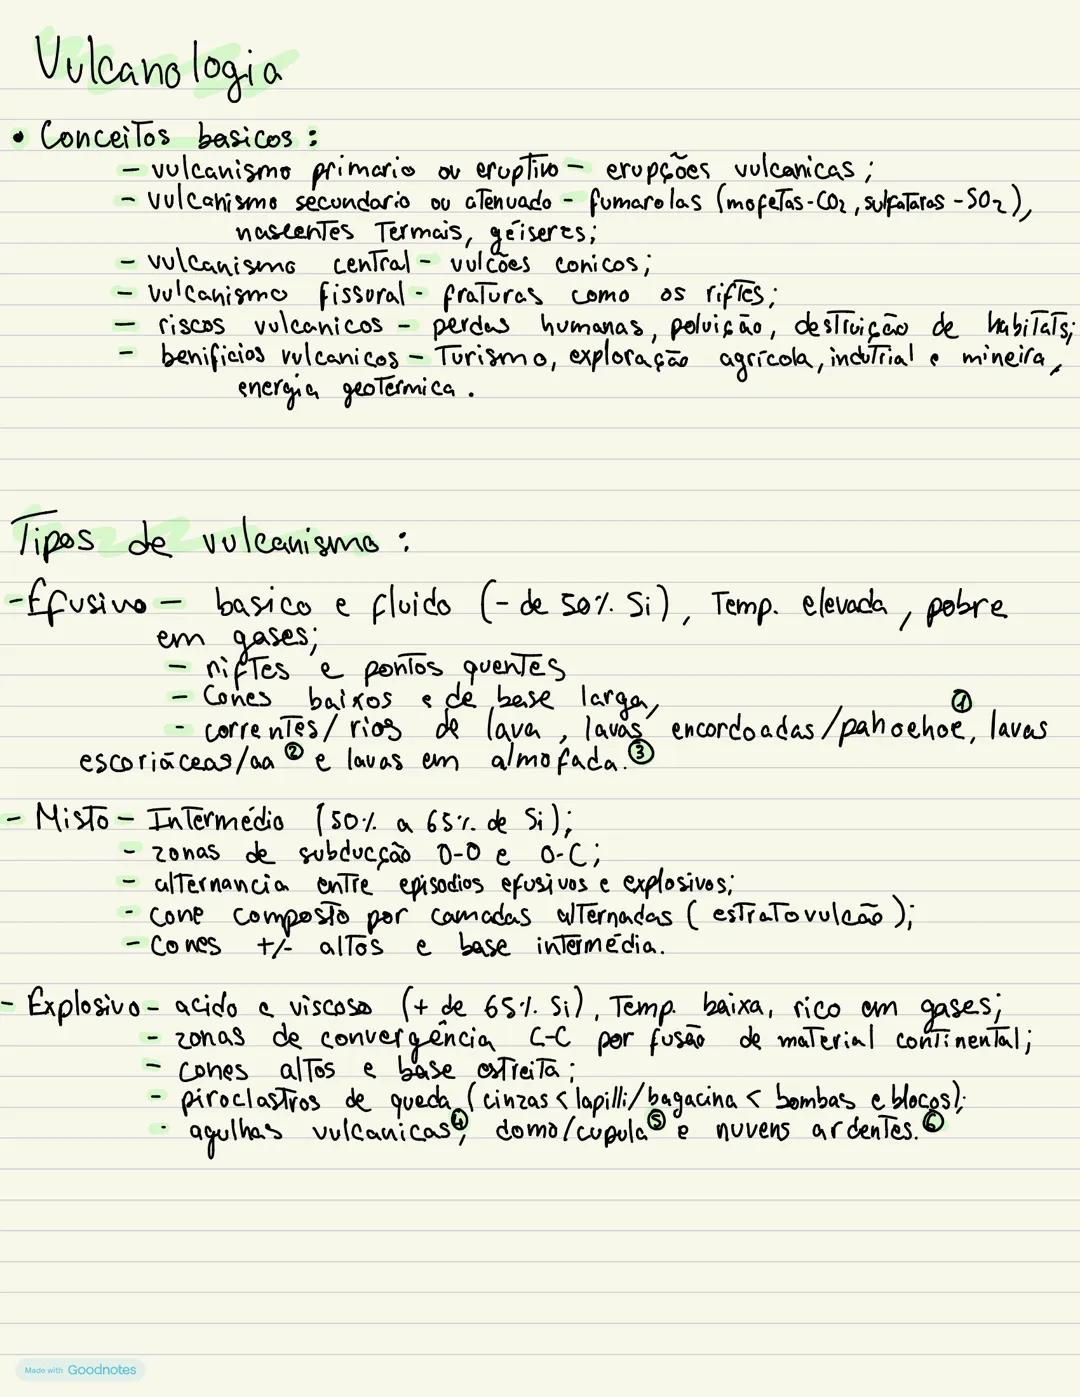 Vulcanologia
• Conceitos basicos:
- vulcanismo primario ou eruptivo - erupções vulcanicas;
- vulcanismo secundario ou atenuado - fumarolas (mofetas-CO2, sulfataras -SO2),
nascentes Termais, géiseres;
- vulcanismo central - vulcões conicos;
- vulcanismo fissural - fraturas como os riftes;
- riscos vulcanicos - perdas humanas, poluição, destruição de habitats;
- benificios vulcanicos - Turismo, exploração agrícola, indutrial e mineira,
energia geotermica.
Tipos de vulcanismo:
- Efusivo - basico e fluido (- de 50% Si), Temp. elevada, pobre
em gases;
- riftes e pontos quentes
- Cones baixos e de base larga,
- correntes/rios de lava, lavas encordoadas/pahoehoe, ① lavas
escoriáceas/aa ② e lavas em almofada. ③
- Misto - Intermédio (50% a 65% de Si);
- zonas de subducção O-O e O-C;
- alternancia entre episodios efusivos e explosivos;
- cone composto por camadas alternadas (estratovulcão);
- Cones +/- altos e base intermédia.
- Explosivo - acido e viscoso (+ de 65% Si), Temp. baixa, rico em gases;
- zonas de convergência C-C por fusão de material continental;
- cones altos e base estreita;
- piroclastros de queda (cinzas < lapilli/bagacina < bombas e blocos);
- agulhas vulcanicas ④, domo/cupula ⑤ e nuvens ardentes. ⑥
Made with Goodnotes